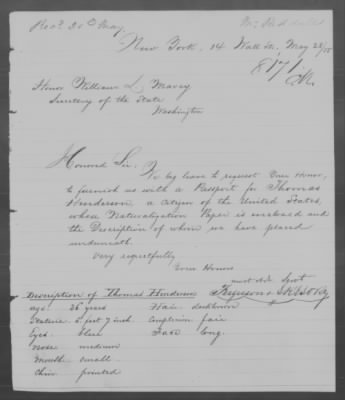 Recd 30th May
New York, 14 Wall St, May 28/55
8171
Honor William L Marcy
Secretary of the State
Washington
Honored Sir:
We beg leave to request Your Honor,
to furnish us with a Passport for Thomas
Henderson, a citizen of the United States,
whose Naturalization Paper is enclosed and
the Description of whom we have placed
underneath.
Very respectfully
Your Honors
most obd. Servt
Description of Thomas Henderson
age 26 years Hair darkbrown
Stature 5 feet 7 inch Complexion fair
Eyes blue Face long
Nose medium
Mouth small
Chin pointed